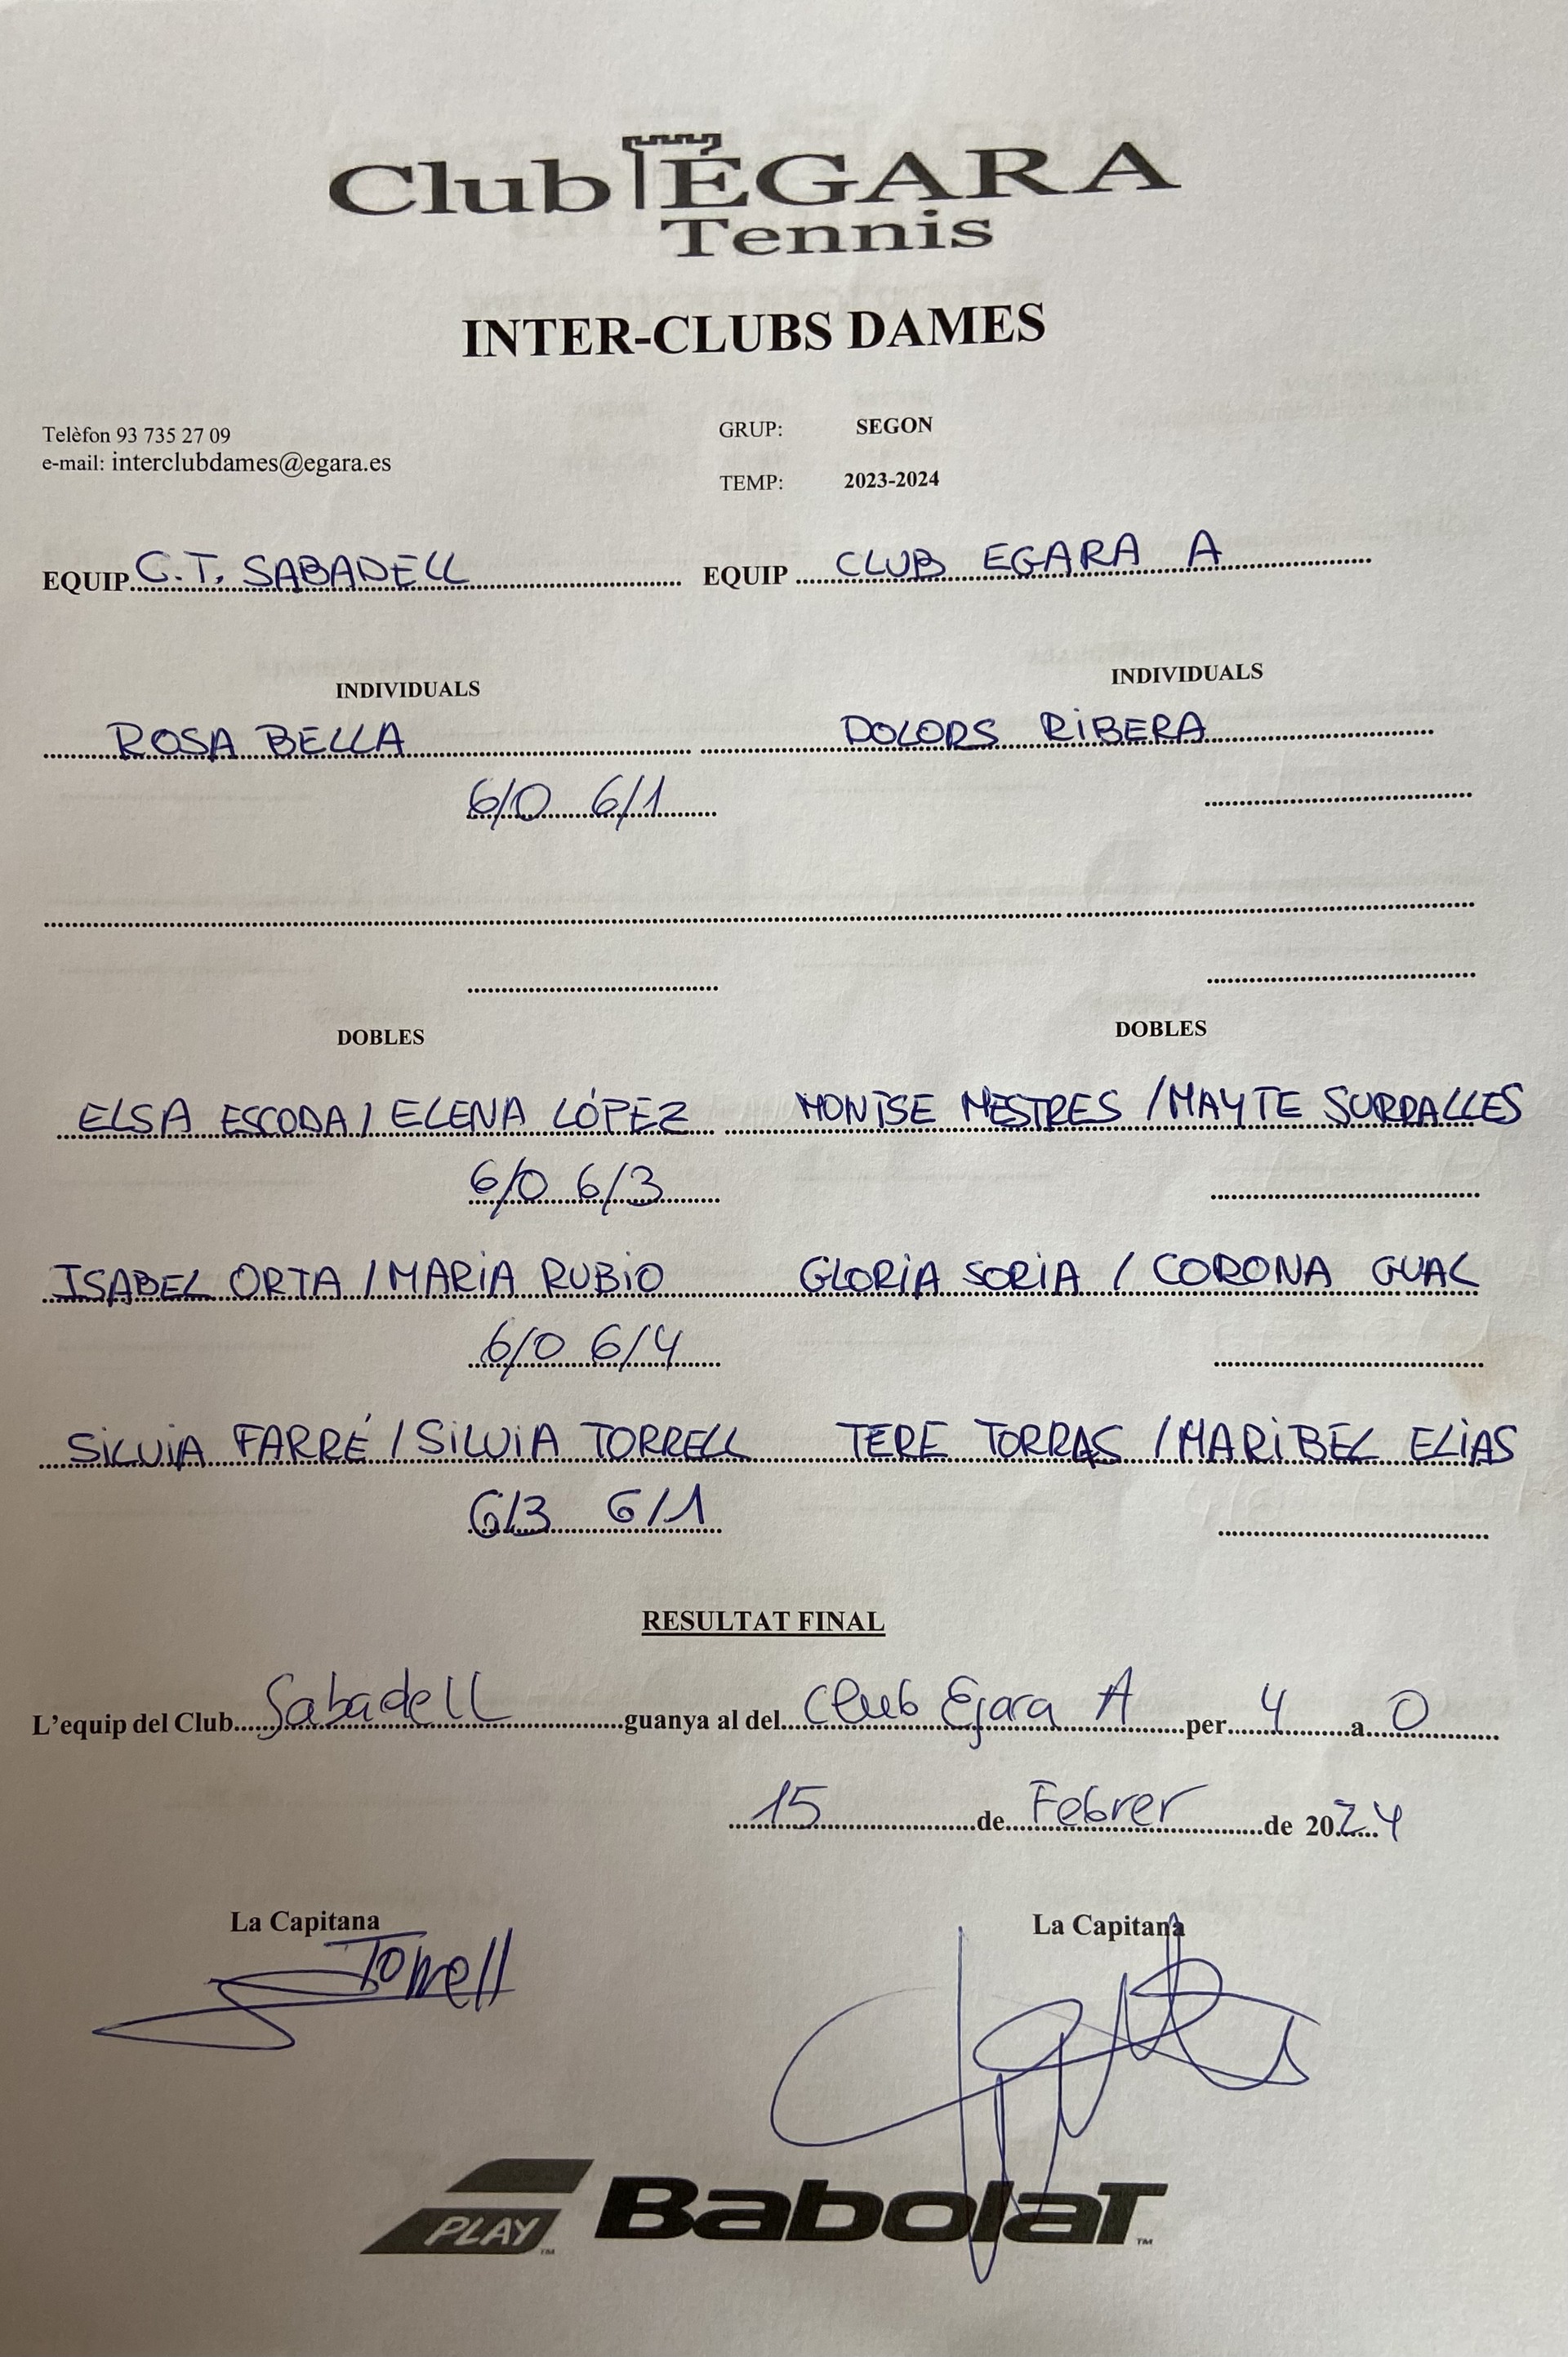 Club ÉGARA
Tennis
INTER-CLUBS DAMES
Telèfon 93 735 27 09
e-mail: interclubdames@egara.es
GRUP: SEGON
TEMP: 2023-2024
EQUIP C.T. SABADELL EQUIP CLUB EGARA A
INDIVIDUALS INDIVIDUALS
ROSA BELLA DOLORS RIBERA
6/0 6/1
DOBLES DOBLES
ELSA ESCODA / ELENA LÓPEZ MONTSE MESTRES / MAYTE SURRALLES
6/0 6/3
ISABEL ORTA / MARIA RUBIO GLORIA SORIA / CORONA GUAL
6/0 6/4
SILVIA FARRÉ / SILVIA TORRELL TERE TORRAS / MARIBEL ELIAS
6/3 6/1
RESULTAT FINAL
L'equip del Club Sabadell guanya al del Club Egara A per 4 a 0
15 de Febrer de 2024
La Capitana La Capitana
Torrell
PLAY™ Babolat™